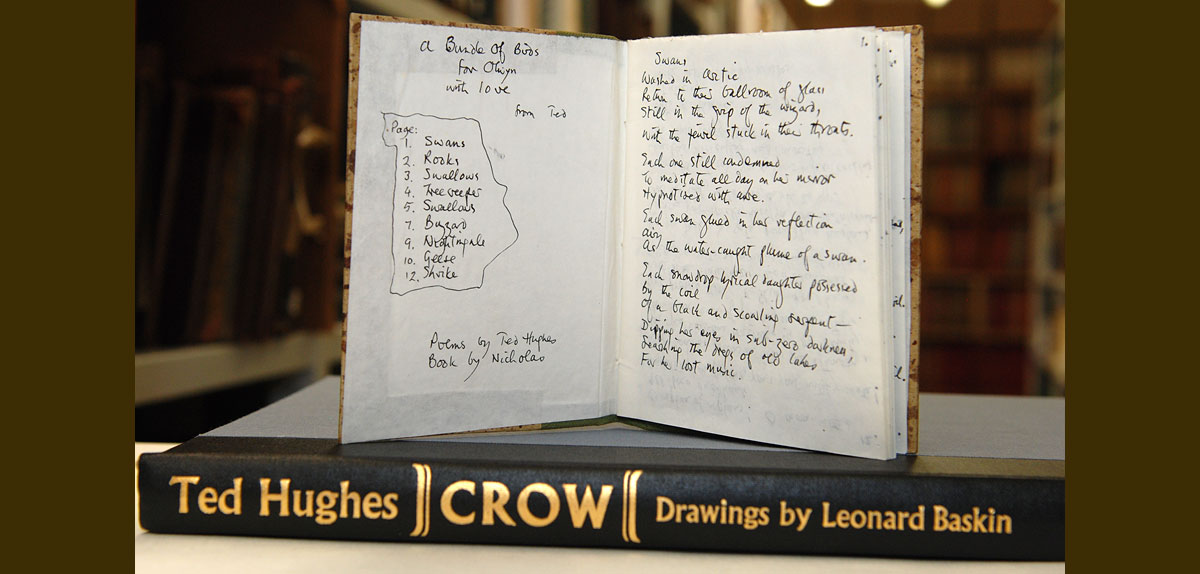 a Bundle Of Birds
for Olwyn
with love
from Ted
Page:
1. Swans
2. Rooks
3. Swallows
4. Treecreeper
5. Swallows
7. Buzzard
9. Nightingale
10. Geese
12. Shrike
Poems by Ted Hughes
Book by Nicholas
1.
Swans
Washed in Arctic
Return to their ballroom of glass
Still in the grip of the wizard,
With the jewel stuck in their throats.
Each one still condemned
To meditate all day on her mirror
Hypnotised with awe.
Each swan glued in her reflection
airy
As the water-caught plume of a swan.
Each snowdrop lyrical daughter possessed
By the coil
Of a black and scowling serpent—
Dipping her eyes in sub-zero darkness,
Searching the dregs of old lakes
For her lost music.
Ted Hughes CROW Drawings by Leonard Baskin